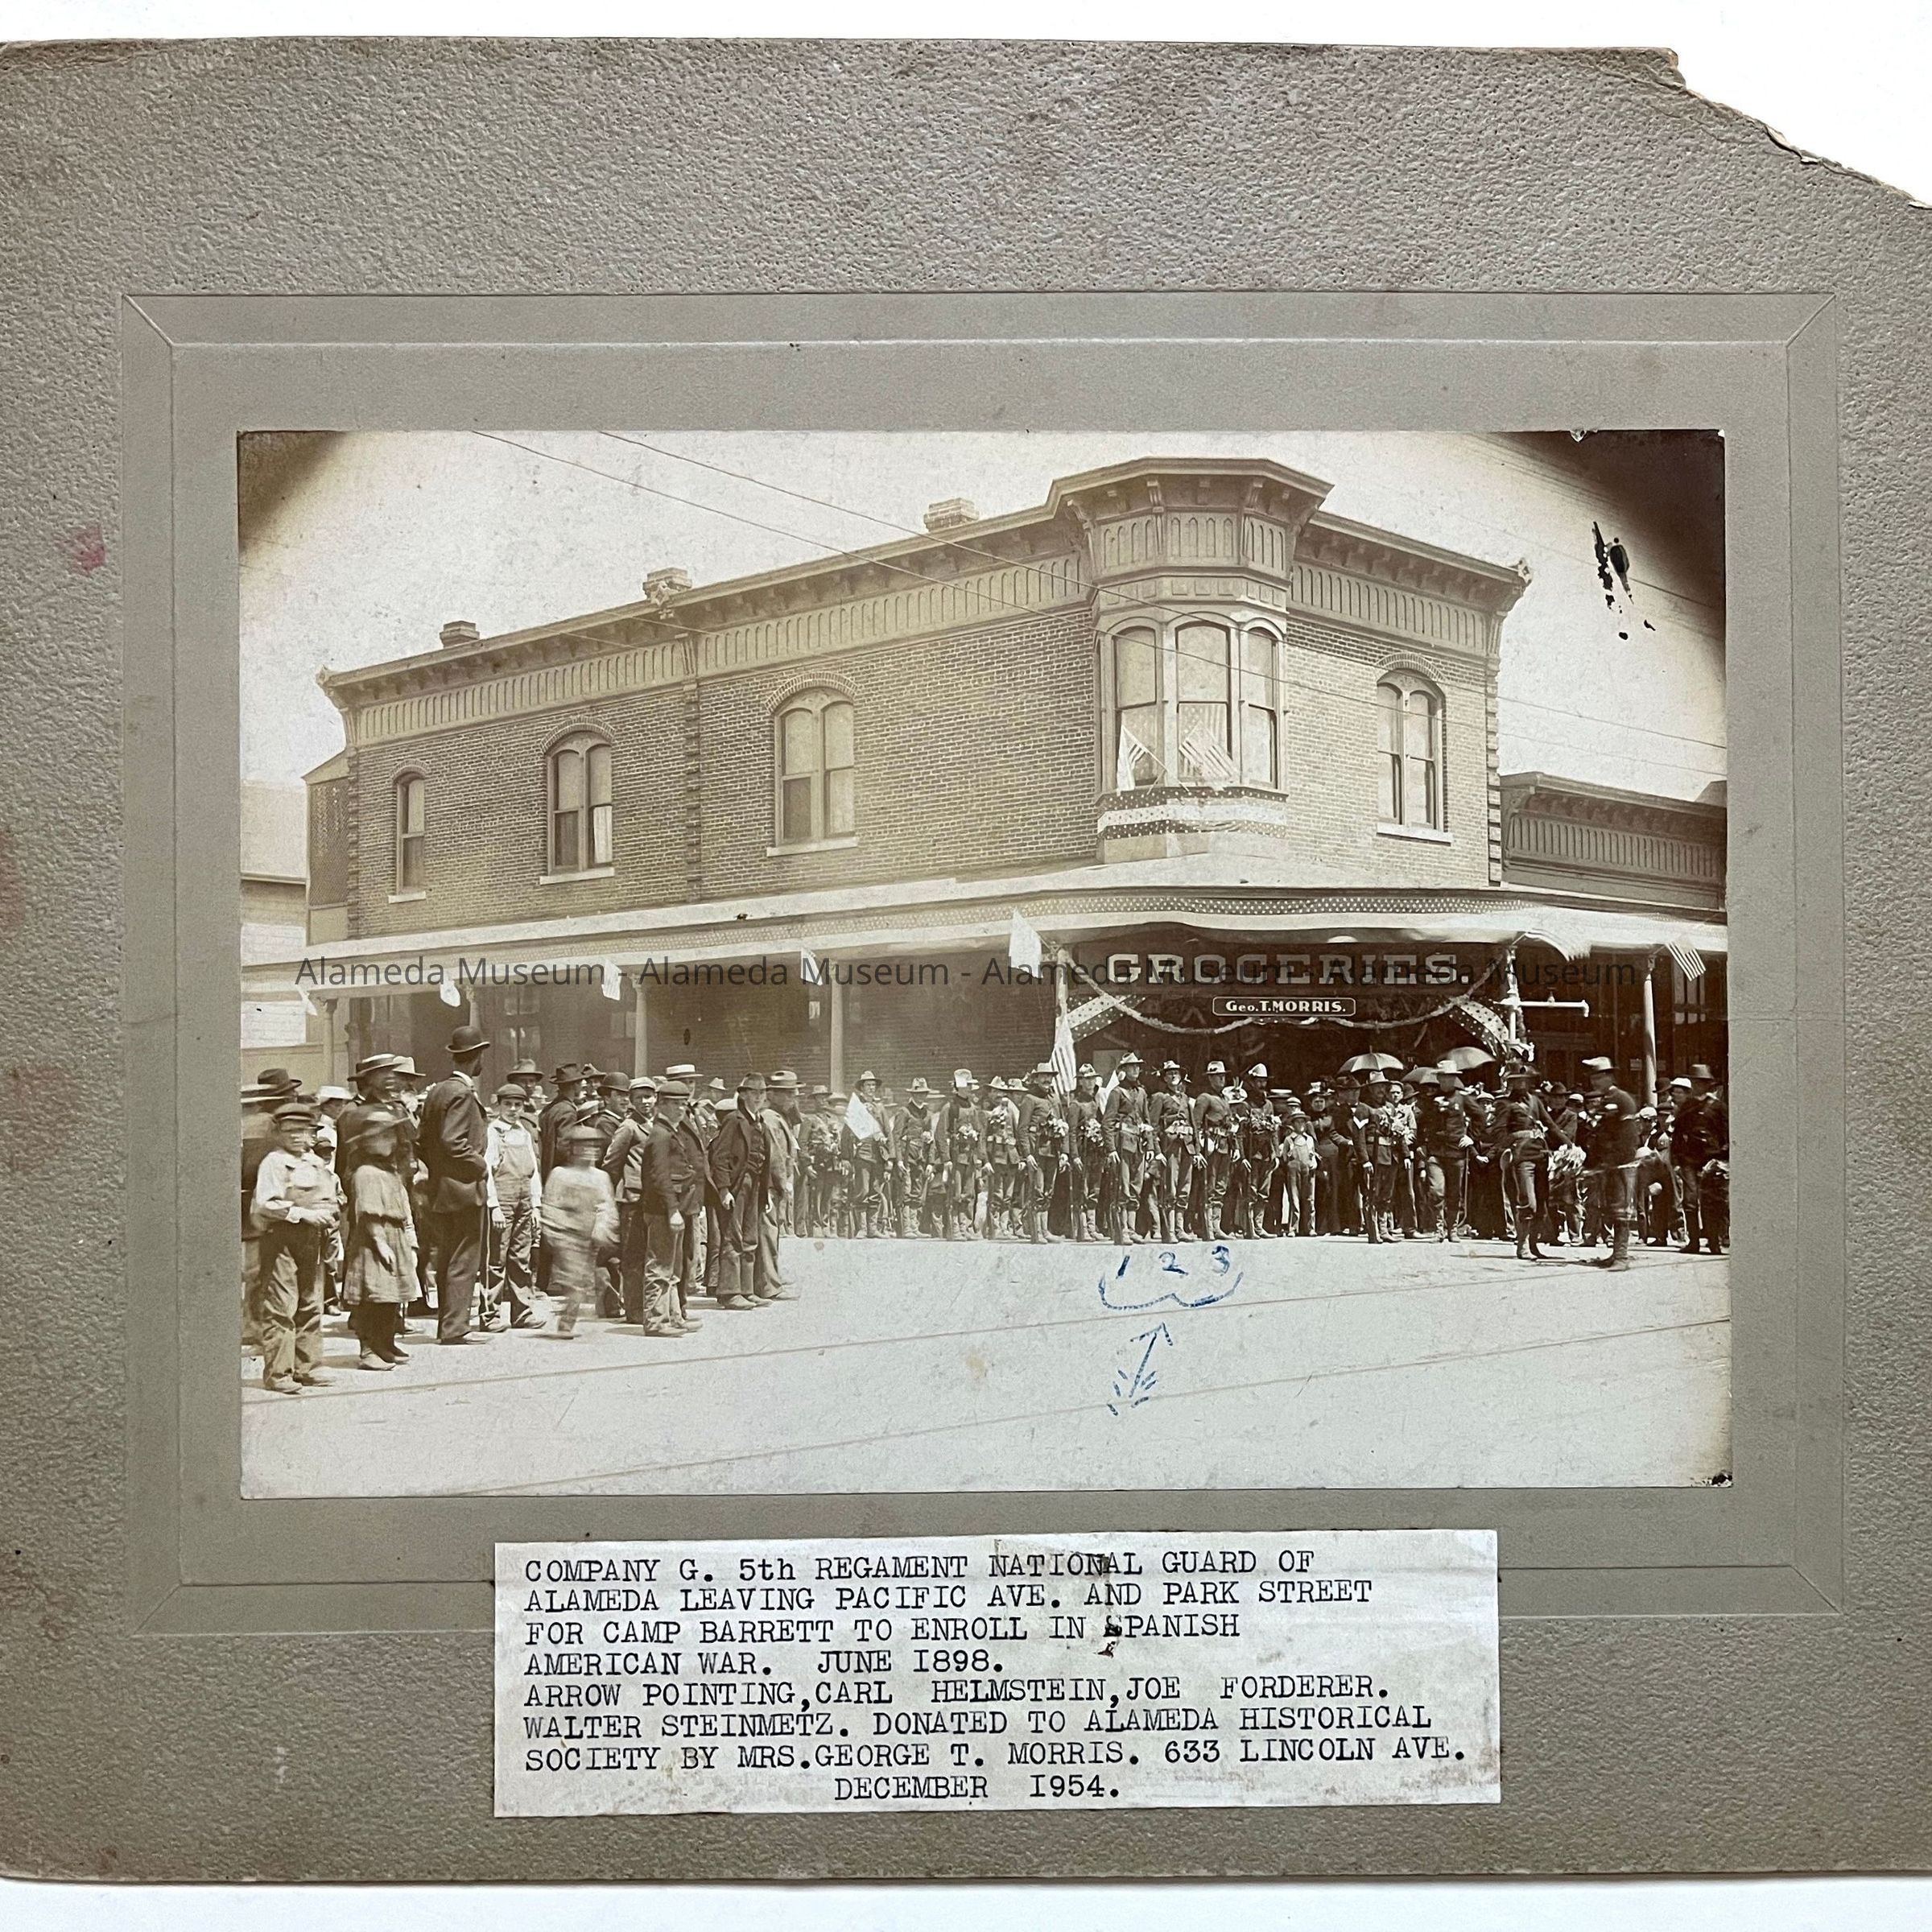 Alameda Museum - Alameda Museum - Alameda Museum - Alameda Museum
GROCERIES.
Geo.T.MORRIS.
1 2 3
COMPANY G. 5th REGAMENT NATIONAL GUARD OF
ALAMEDA LEAVING PACIFIC AVE. AND PARK STREET
FOR CAMP BARRETT TO ENROLL IN SPANISH
AMERICAN WAR. JUNE I898.
ARROW POINTING,CARL HELMSTEIN,JOE FORDERER.
WALTER STEINMETZ. DONATED TO ALAMEDA HISTORICAL
SOCIETY BY MRS.GEORGE T. MORRIS. 633 LINCOLN AVE.
DECEMBER I954.